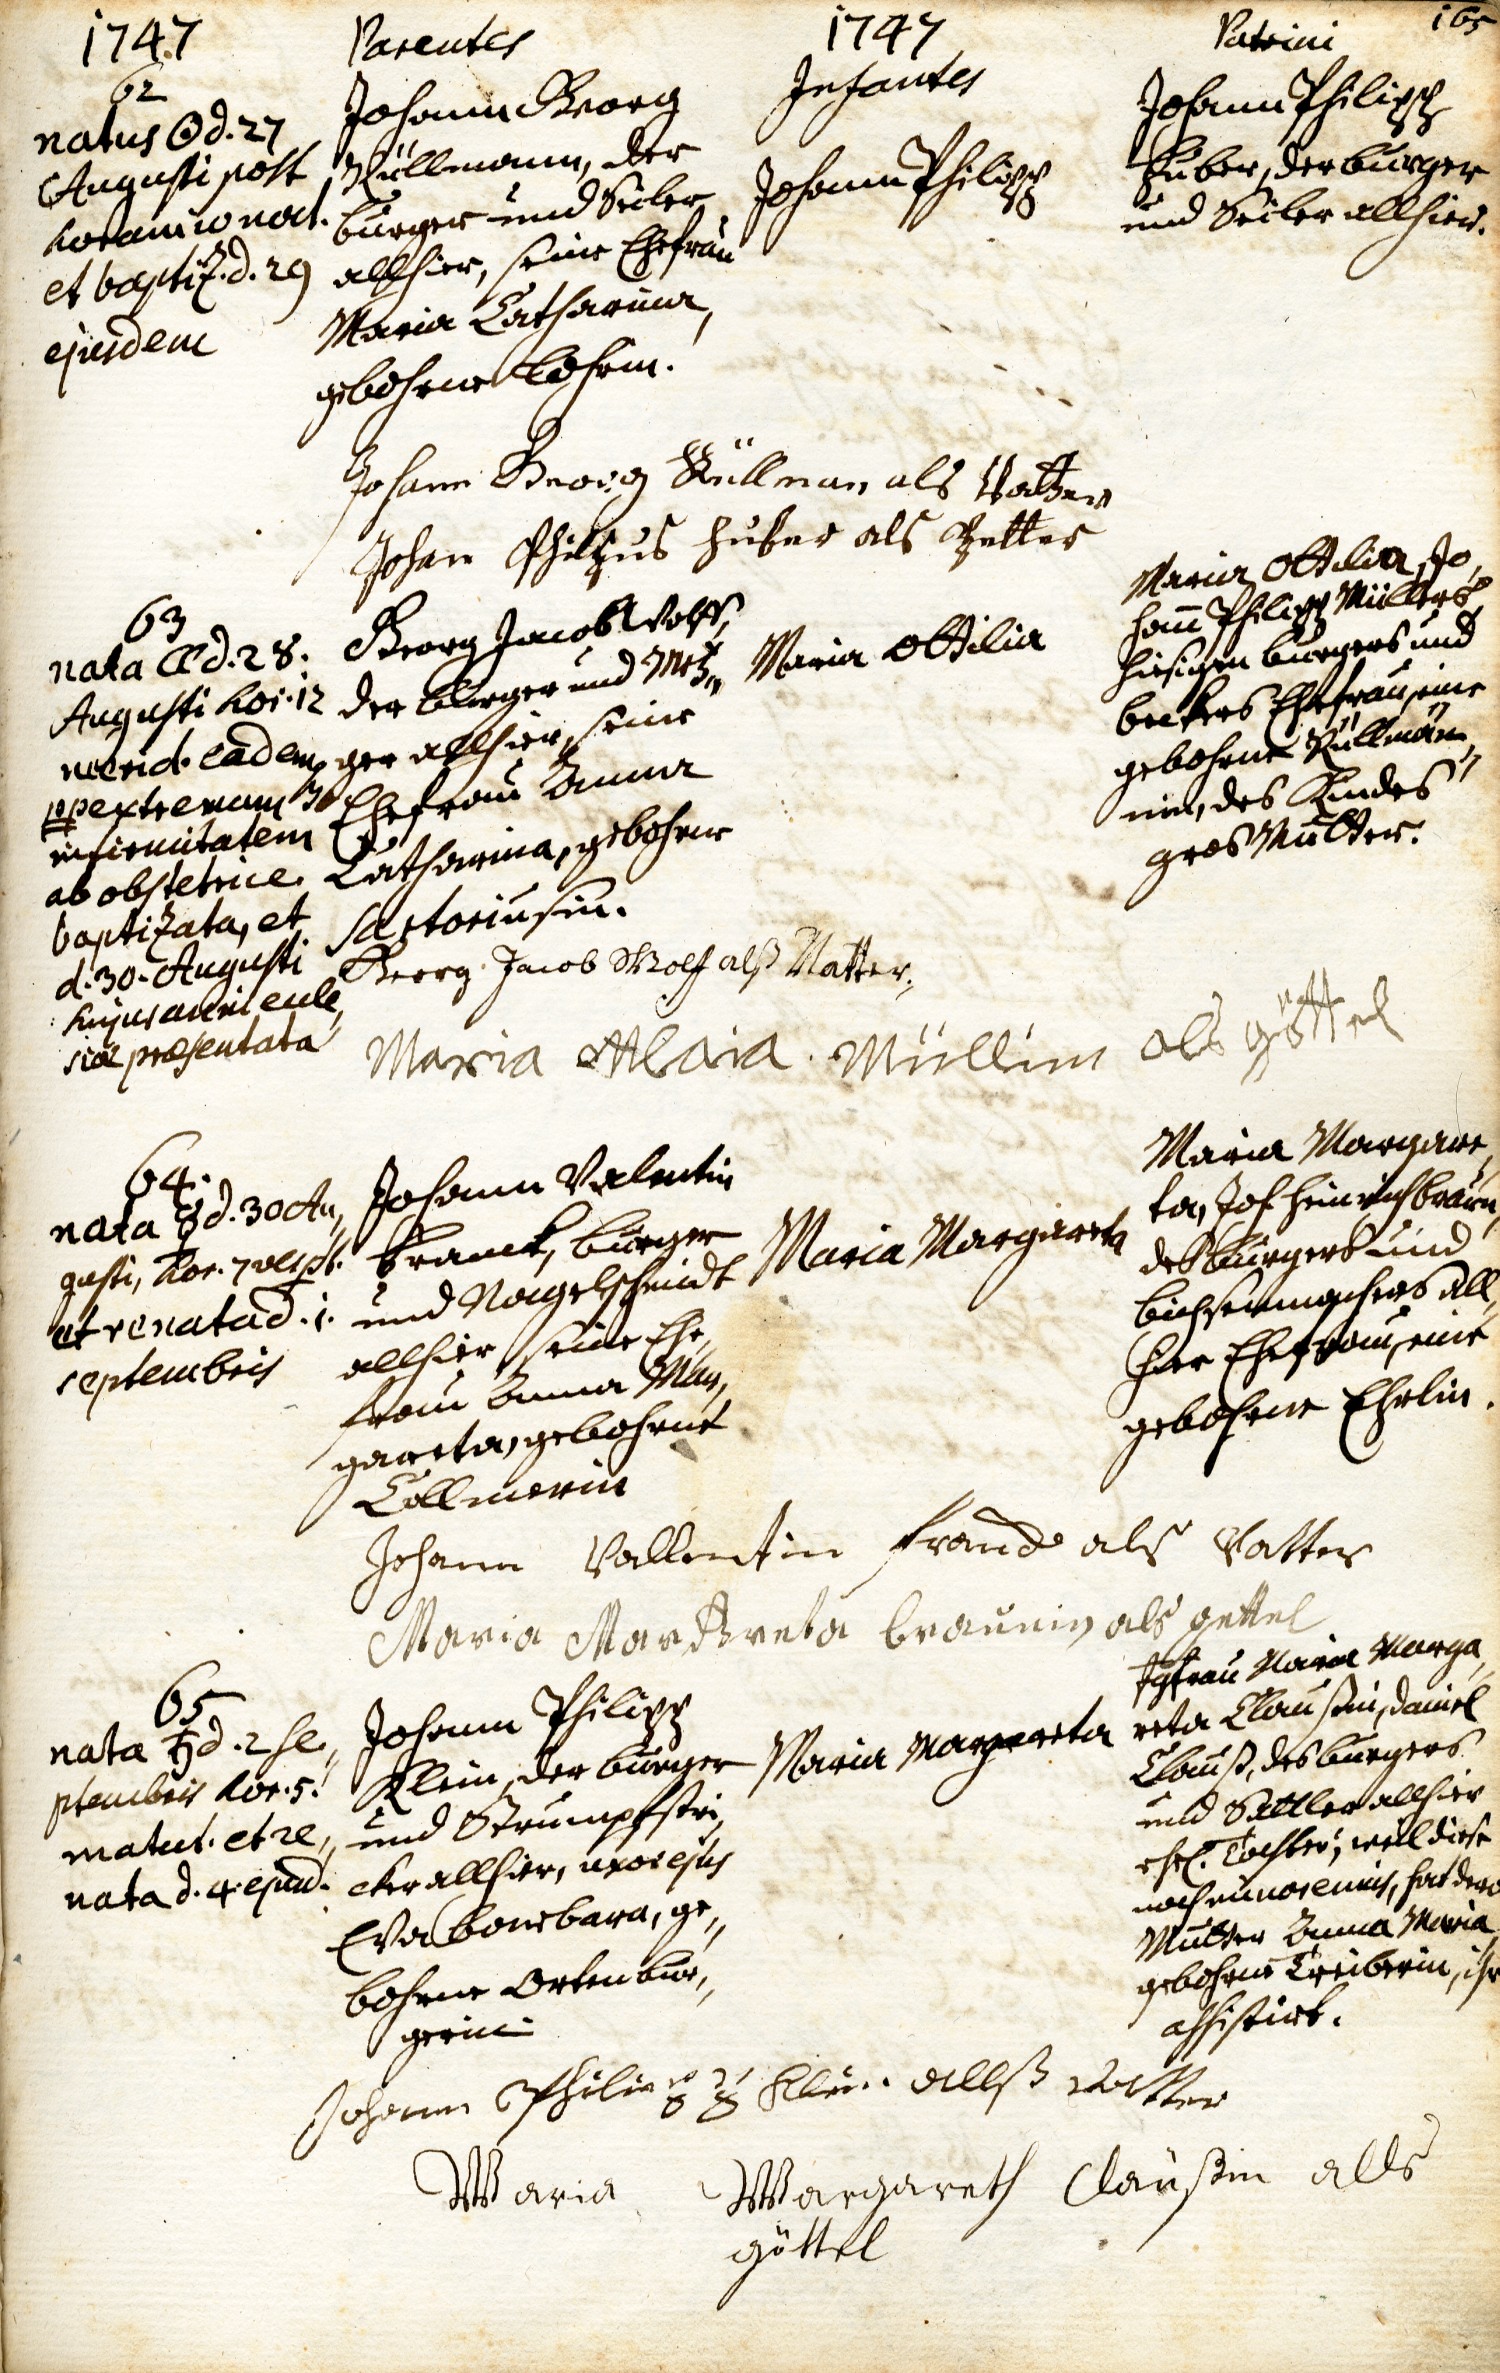 165
1747
Parentes
1747
Infantes
Patrini
62
natus ☉ d. 27
Augusti post
horam 10 noct.
et baptiz. d. 29
ejusdem
Johann Georg
Küllmann, der
burger und Seiler
allhier, seine Ehefrau
Maria Catharina,
gebohrne
Johann Philipp
Johann Philipp
Huber, der burger
und Seiler allhier.
Johann Georg Küllman als Vatter
Johan Philipus Huber als Petter
63
nata ☾ d. 28.
Augusti hor. 12
merid. eadem
pp extremam
infirmitatem
ab obstetrice
baptizata, et
d. 30. Augusti
hujus anni eccle„
siæ præsentata
Georg Jacob Wolff,
der burger und Metz„
ger allhier, seine
Ehefrau Anna
Catharina, gebohrne
Sartoriusin.
Maria Ottilia
Maria Ottilia, Jo„
hañ Philipp Müllers,
hiesigen burgers und
beckers Ehefrau, eine
gebohrne Küllmän„
nin, des Kindes
gros Mutter.
Georg Jacob Wolf alß Vatter.
Maria Müllerin als göttel
64.
nata ☿ d. 30 Au„
gusti, hor. 7 vesp.
et renata d. 1.
septembris
Johann Valentin
Franck, burger
und Nagelschmidt
allhier, seine Ehe„
frau Anna Mar„
gareta, gebohrne
Collmerin
Maria Margareta
Maria Margare„
ta, Joh Heinrich braun,
des burgers und
bichsenmachers all„
hier Ehefrau, eine
gebohrne Ehrlin.
Johann Vallentin Franck als Vatter
Maria Margreta braunin als gettel
65
nata ♄ d. 2 se„
ptembris hor. 5.
matut. et re„
nata d. 4. ejusd.
Johann Philipp
Klein, der burger
und Strumpfstri„
cker allhier, uxor ejus
Eva barbara, ge„
bohrne Ortenbur„
gerin
Maria Margareta
Jgfrau Maria Marga„
reta Claußin, Daniel
Clauß, des burgers
und Sattler allhier
ehel. Tochter; weil diese
noch minorennis, hat dero
Mutter Anna Maria
gebohrne Treiberin, ihr
assistirt.
Johann Philipp Klein allß Vatter
Maria Margareth Claußin alls
göttel